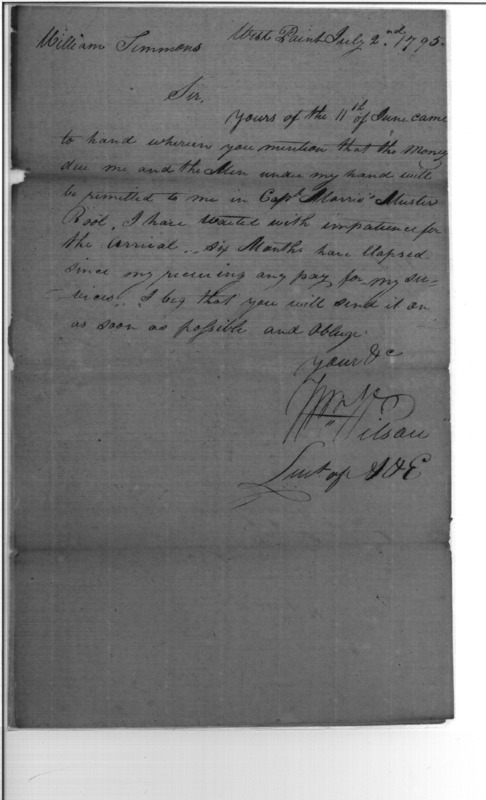 William Simmons West Point July 2nd. 1795.
Sir,
Yours of the 11th of June came
to hand wherein you mention that the Money
due me and the Men under my hand will
be remitted to me in Capt. Morris' Muster
Rool, I have waited with impatience for
the arrival. Six Months have Elapsed
since my receiving any pay for my ser-
vices. I beg that you will send it on
as soon as possible and Oblige.
your &c
Wm Wilson
Lieut of A & E